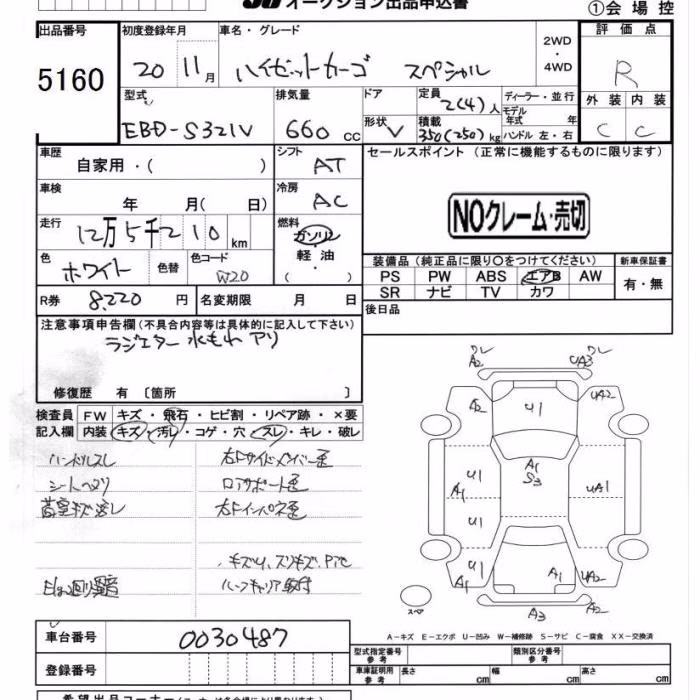 オークション出品申込書
①会場控
出品番号 5160
初度登録年月 20 11月
車名・グレード ハイゼットカーゴ スペシャル
2WD・4WD
評価点 R
外装 C 内装 C
型式 EBD-S321V
排気量 660 CC
ドア形状 V
定員 2(4)人
積載 350(250)kg
ディーラー・並行
モデル年式 年
ハンドル 左・右
車歴 自家用・( )
シフト AT
セールスポイント(正常に機能するものに限ります)
車検 年 月( 日)
冷房 AC
NOクレーム・売切
走行 12万5千210km
燃料 ガソリン 軽油 ( ・ )
色 ホワイト 色替 色コード W20
装備品(純正品に限り○をつけてください)
新車保証書
PS PW ABS エアB AW
SR ナビ TV カワ
有・無
R券 8,220円 名変期限 月 日
後日品
注意事項申告欄(不具合内容等は具体的に記入して下さい)
ラジエター 水もれ アリ
修復歴 有〔箇所 〕
検査員記入欄
FW キズ・飛石・ヒビ割・リペア跡・×要
内装 キズ・汚レ・コゲ・穴・スレ・キレ・破レ
ハンドルスレ 右Fサイドメンバー歪
シートヘタリ ロアサポート歪
荷室キズ 右Fインパネ歪
キズU、スリキズ、
ルーフキャリア取付
ワレ ワレ
A2 UA3
A2 U1 UA2
A1 S3
U1 A1 UA1
U1
A1 A1 UA2
A3
スペア
A-キズ E-エクボ U-凹み W-補修跡 S-サビ C-腐食 XX-交換済
車台番号 0030487
登録番号
型式指定番号 参考 類別区分番号 参考
車庫証明用 参考 長さ cm 幅 cm 高さ cm
希望出品コーナー